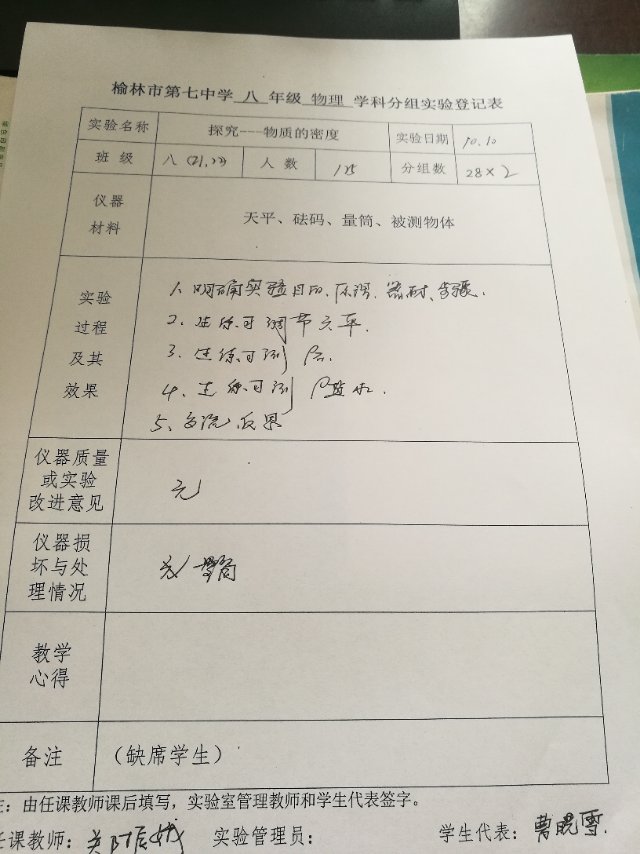 榆林市第七中学 八 年级 物理 学科分组实验登记表
实验名称 探究---物质的密度 实验日期 10.10
班级 八(21,22) 人数 分组数 28×2
仪器材料 天平、砝码、量筒、被测物体
实验过程及其效果
1、明确实验目的、原理、器材、步骤.
2、生练习调节天平.
3、生练习测ρ石.
4、生练习测ρ盐水.
5、交流、反思
仪器质量或实验改进意见 无
仪器损坏与处理情况 量筒
教学心得
备注 (缺席学生)
注：由任课教师课后填写，实验室管理教师和学生代表签字。
任课教师： 实验管理员： 学生代表：曹晓雪.